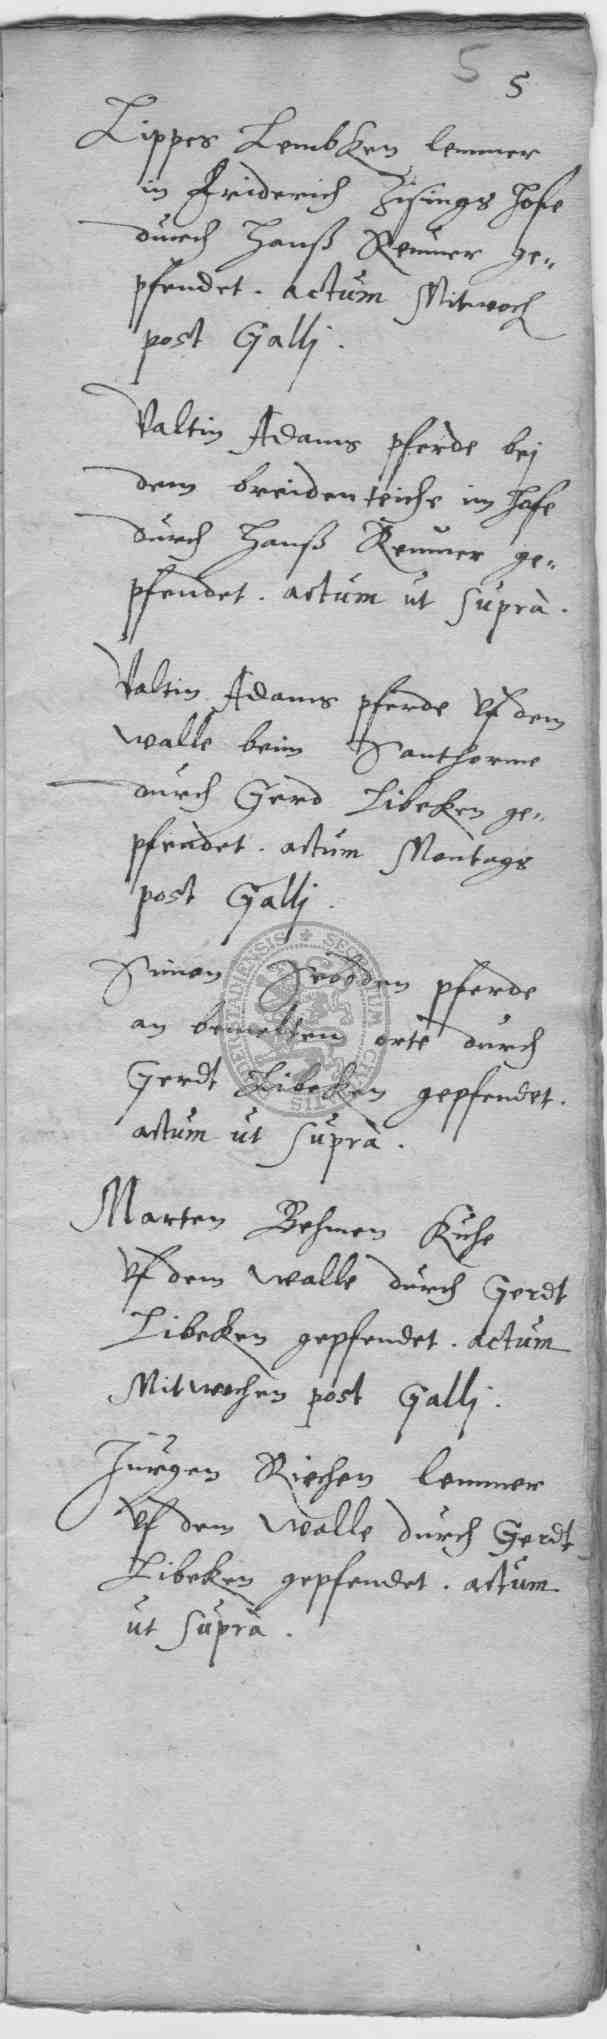 5 5
Lippes Lembken lemmer
in Friderich Zisings hofe
durch Hanß Remmer ge„
pfendet. actum Mitwoch
post Galli.
Valtin Adams pferde bej
dem breidenteiche im hofe
durch Hanß Remmer ge„
pfendet. actum ut suprà.
Valtin Adams pferde vf dem
walle beim Santhorme
durch Gerd Libeken ge„
pfendet. actum Montags
post Galli.
Simon pferde
an bemelten orte durch
Gerdt Libeken gepfendet.
actum ut suprà.
Marten Behmen Kuhe
vf dem walle durch Gerdt
Libeken gepfendet. actum
Mitwochen post Galli.
Jurgen Riechen lemmer
vf dem walle durch Gerdt
Libeken gepfendet. actum
ut suprà.